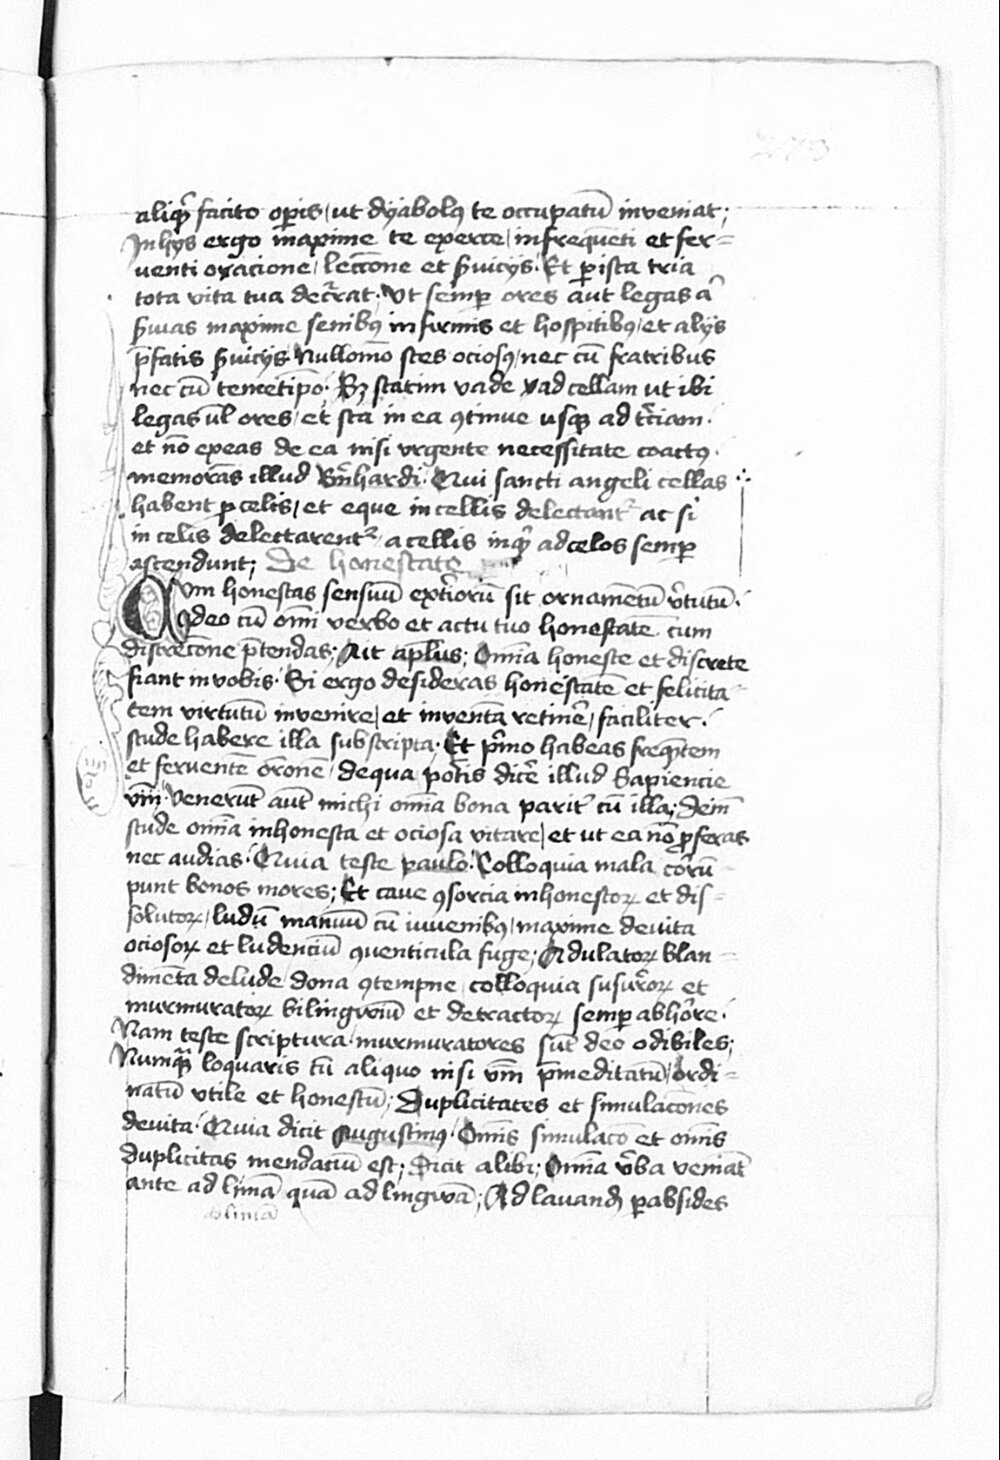 273
aliqͥd facito oꝑis / ut dyabolꝰ te occupatū inveniat ;
In hys ergo maxime te exerce / in freque͂ti et fer=
venti oracione / lectōne et ẜuicijs · Et ꝑ ista tria
tota vita tua dec̾rat · Ut semꝑ ores aut legas a͛
ẜuias maxime senibꝰ infirmis et hospitibꝰ / et alijs
p̄fatis ẜuicijs · Nullomō stes ociosꝰ / nec cū fratribus
nec cū temetip̄o · Sꝫ statim vade ad cellam ut ibi
legas ul̄ ores / et sta in ea ꝯtinue usqꝫ ad t̾ciam ·
et nō exeas de ea nisi urgente necessitate coactꝰ ·
memorās illud B̾nhardi · Qui sancti angeli cellas
habent ꝑ celis / et eque in cellis delectant᷑ ac si
in celis delectarent᷑ / a cellis inqͥ ad celos semꝑ
ascendunt ; De honestate
Cum honestas sensuū ext̾iorū sit ornamētū v̾tutū ·
Ideo cū om̄i verbo et actu tuo honestatē cum
discrecōne p̄tendas ; Ait apl̄us ; Om̄ia honeste et discrete
fiant in vobis · Si ergo desideras honestatē et felicita=
tem virtutū invenire / et inventa retinē / faciliter ·
stude habere illa subscripta · Et pͥmo habeas freqn̄tem
et ferventē or̄onē / de qua pot̾is dic̾e illud Sapiencie
viiͫ · Venerūt aūt michi om̄ia bona parit᷑ cū illa ; Dein̄
stude om̄ia inhonesta et ociosa vitare / et ut ea nō ꝓferas
nec audias · Quia teste paulo · Colloquia mala corrū=
punt bonos mores ; Et cave ꝯsorcia inhonestoꝝ et dis=
solutoꝝ / ludū manuū cū iuvenibꝰ / maxime devita
ociosoꝝ et ludenciū ꝯventicula fuge ; Adulatoꝝ blan=
dimēta delude / dona ꝯtempne / colloquia susurroꝝ et
murmuratoꝝ bilingwiū et detractoꝝ semꝑ abhorre ·
Nam teste scriptura · murmuratores sūt deo odibiles ;
Numqͣꝫ loquaris cū aliquo nisi vm̄ p̄meditatū / ordi=
natū utile et honestū ; Duplicitates et simulacōnes
devita · Quia dicit Augustinꝰ · Om̄is simulacō et om̄is
duplicitas mendaciū est ; Dicit alibi ; Om̄ia v̾ba veniāt
ante ad limā quā ad lingwā ; Ad lavand̄ ꝑabsides
limā